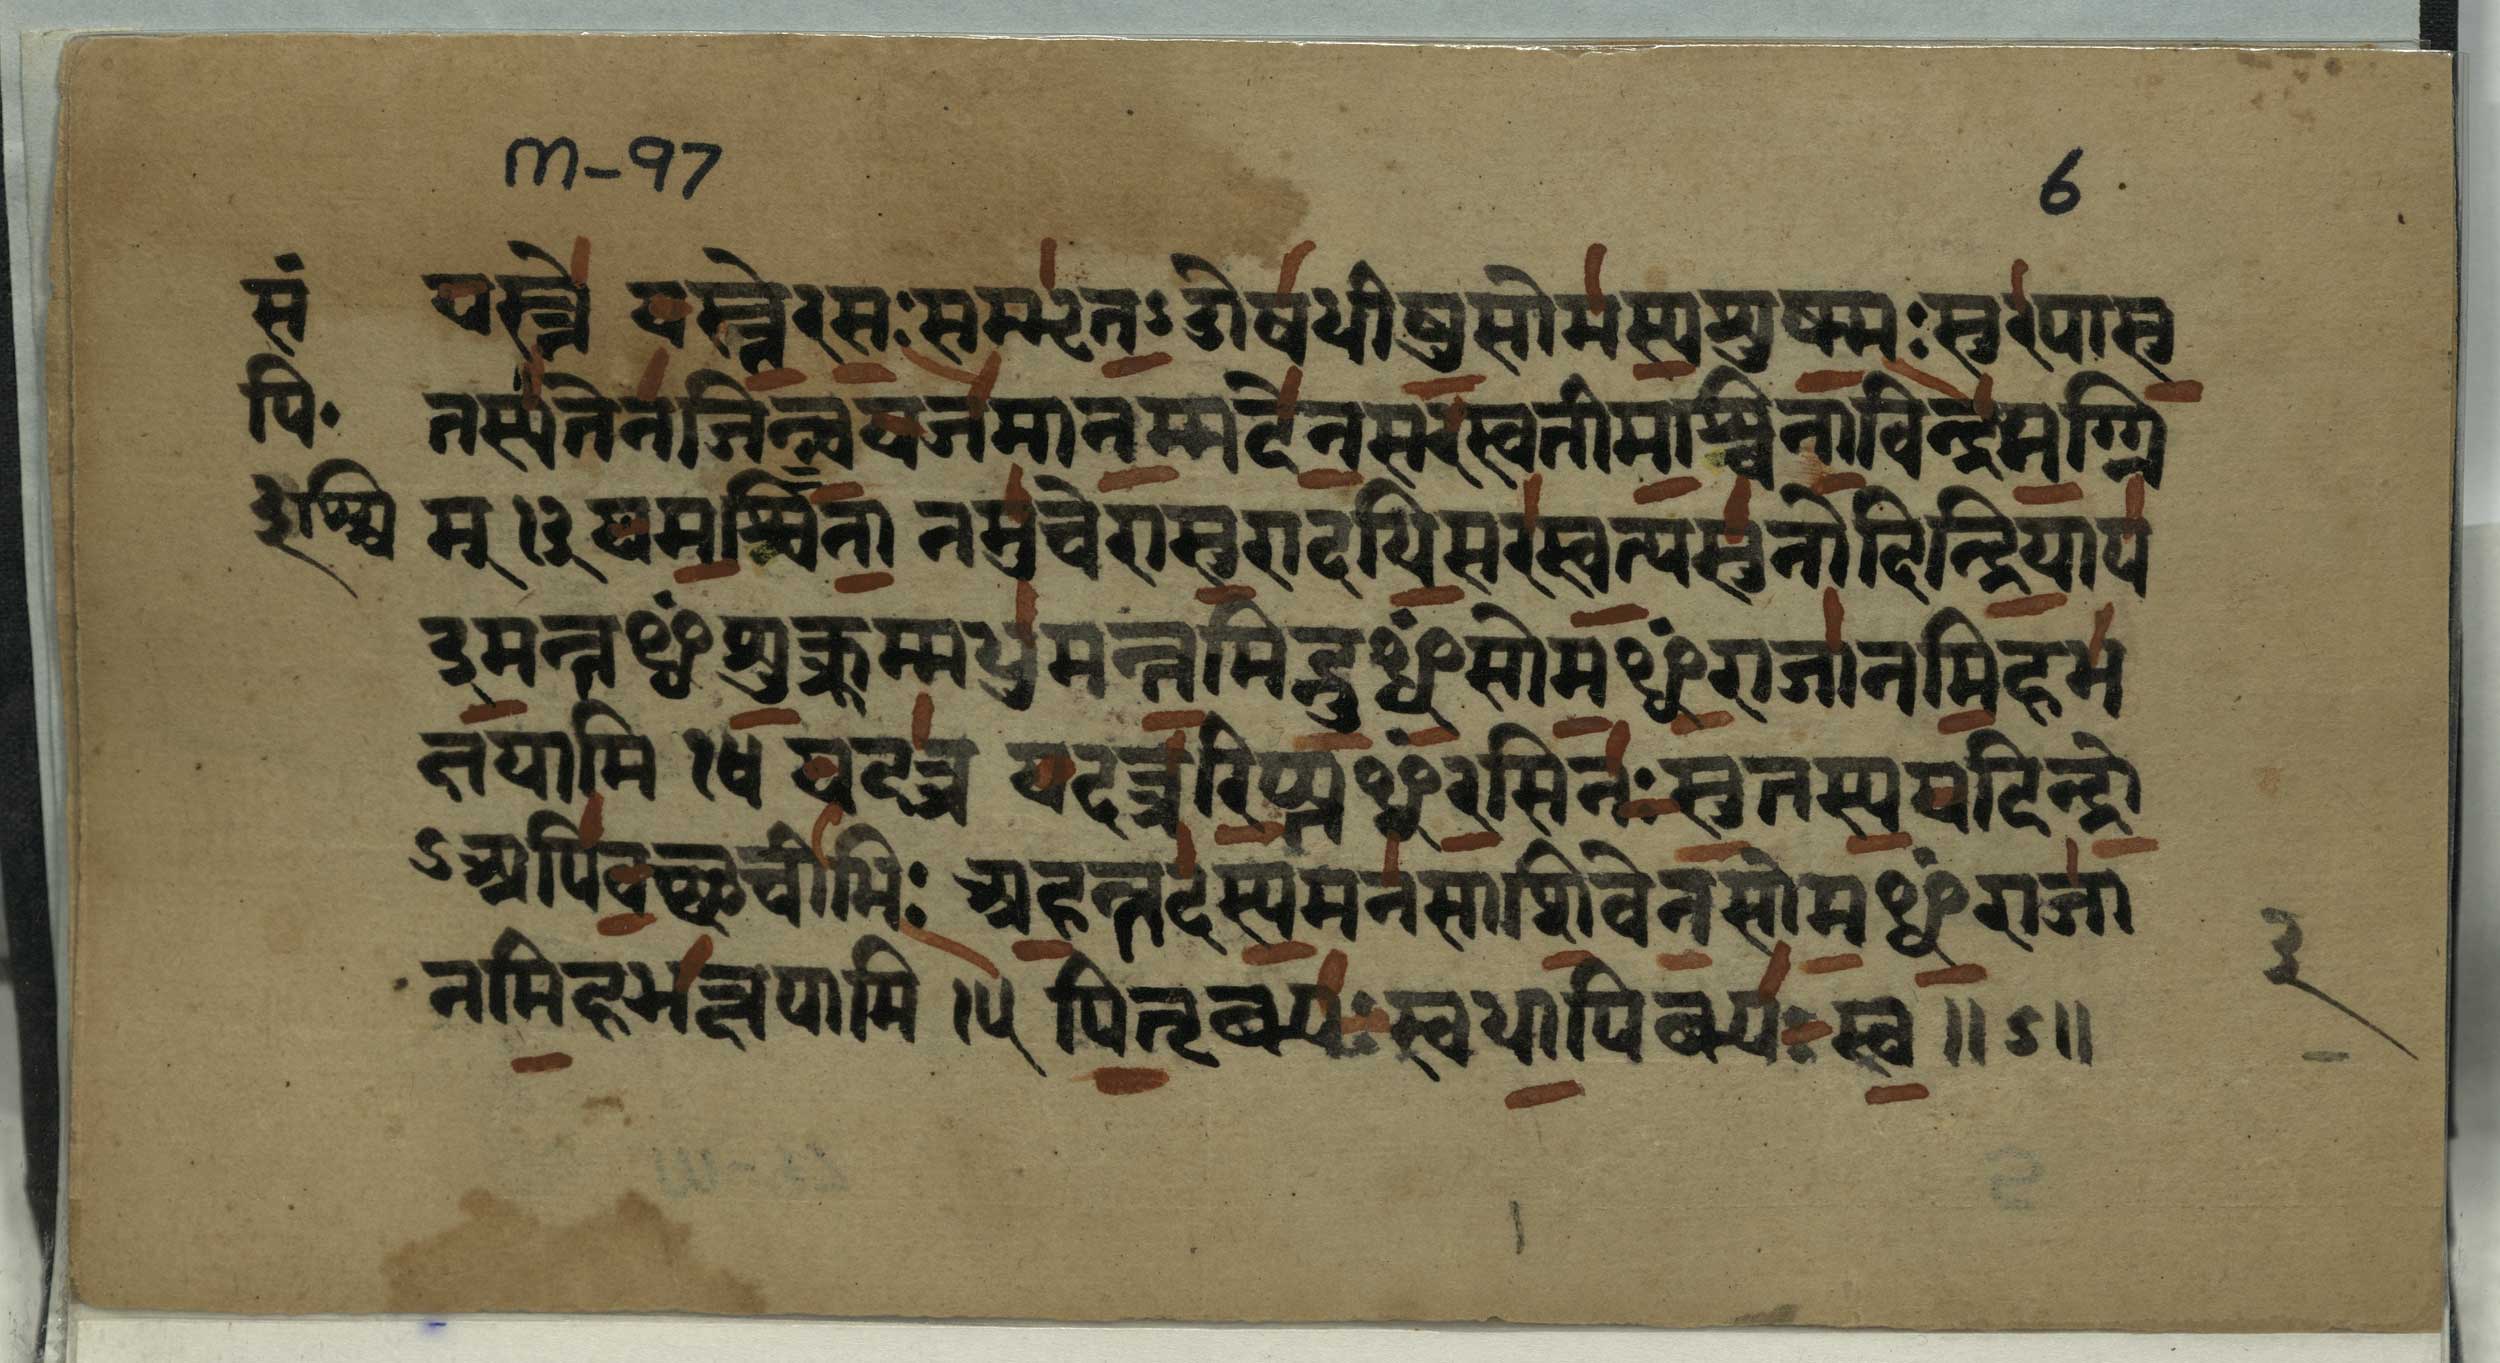 m-97
6
सं यस्ते यस्तेरसःसम्भृतऽओषधीषुसोमस्यशुष्म्मःसुरयासु
पि॰ तस्यतेनजिन्वयजमानम्मदेनसरस्वतीमाश्विनाविन्द्रमग्नि
म् ।३ यमश्विना नमुचेरासुरादधिसरस्वत्यसुनोदिन्द्रियाय
इमन्तᳪशुक्रम्मधुमन्तमिन्दुᳪसोमᳪराजानमिहभ
क्षयामि ।४ यदत्र यदत्ररिप्तᳪरसिनःसुतस्ययदिन्द्रो
ऽअपिबच्छचीभिः अहन्तदस्यमनसाशिवेनसोमᳪराजा
नमिहभक्षयामि ।५ पितृब्भ्यःस्वधायिब्भ्यःस्व ॥ऽ॥
३